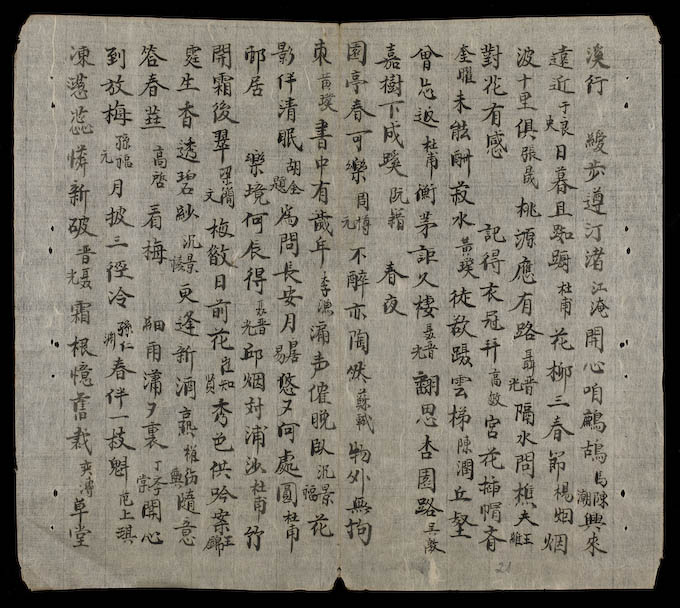 溪行 緩步遵汀渚 江淹 開心咱鷓鴣 馬陳潮 興來
遠近 于良史 日暮且踟躕 杜甫 花柳三春節 楊烟 烟
波十里俱 張晟 桃源應有路 聶晉光 隔水問樵夫 王維
對花有感 記得衣冠拜 高啟 宮花插帽斉
奎曜 未能酬菽水 黃璞 徒欲躡雲梯 陳潤 丘壑
曾忘返 杜甫 衡茅詎久棲 聶晉光 翻思杏園路 王啟
嘉樹下成蹊 阮籍 春夜
園亭春可樂 周博元 不醉亦陶然 蘇軾 物外無拘
束 黃璞 書中有歲年 李漁 漏声催晚臥 沉景福 花
影伴清眠 胡全題 為問長安月 居易 悠々何處圓 杜甫
郊居 樂境何辰得 聶晉光 邱烟対浦沙 杜甫 竹
開霜後翠 梁簡文 梅散日前花 崔知賢 秀色供吟案 王錦
霆 生香透碧紗 沉景福 更逢新酒熟 權 隨意
答春韮 高啓 看梅 細雨瀟々裏 丁常 開心
到放梅 孫臨元 月披三徑冷 孫仁渊 春伴一枝魁 范上琪
凍蕊憐新破 晋聶光 霜根憶舊栽 奕溥 草堂
21